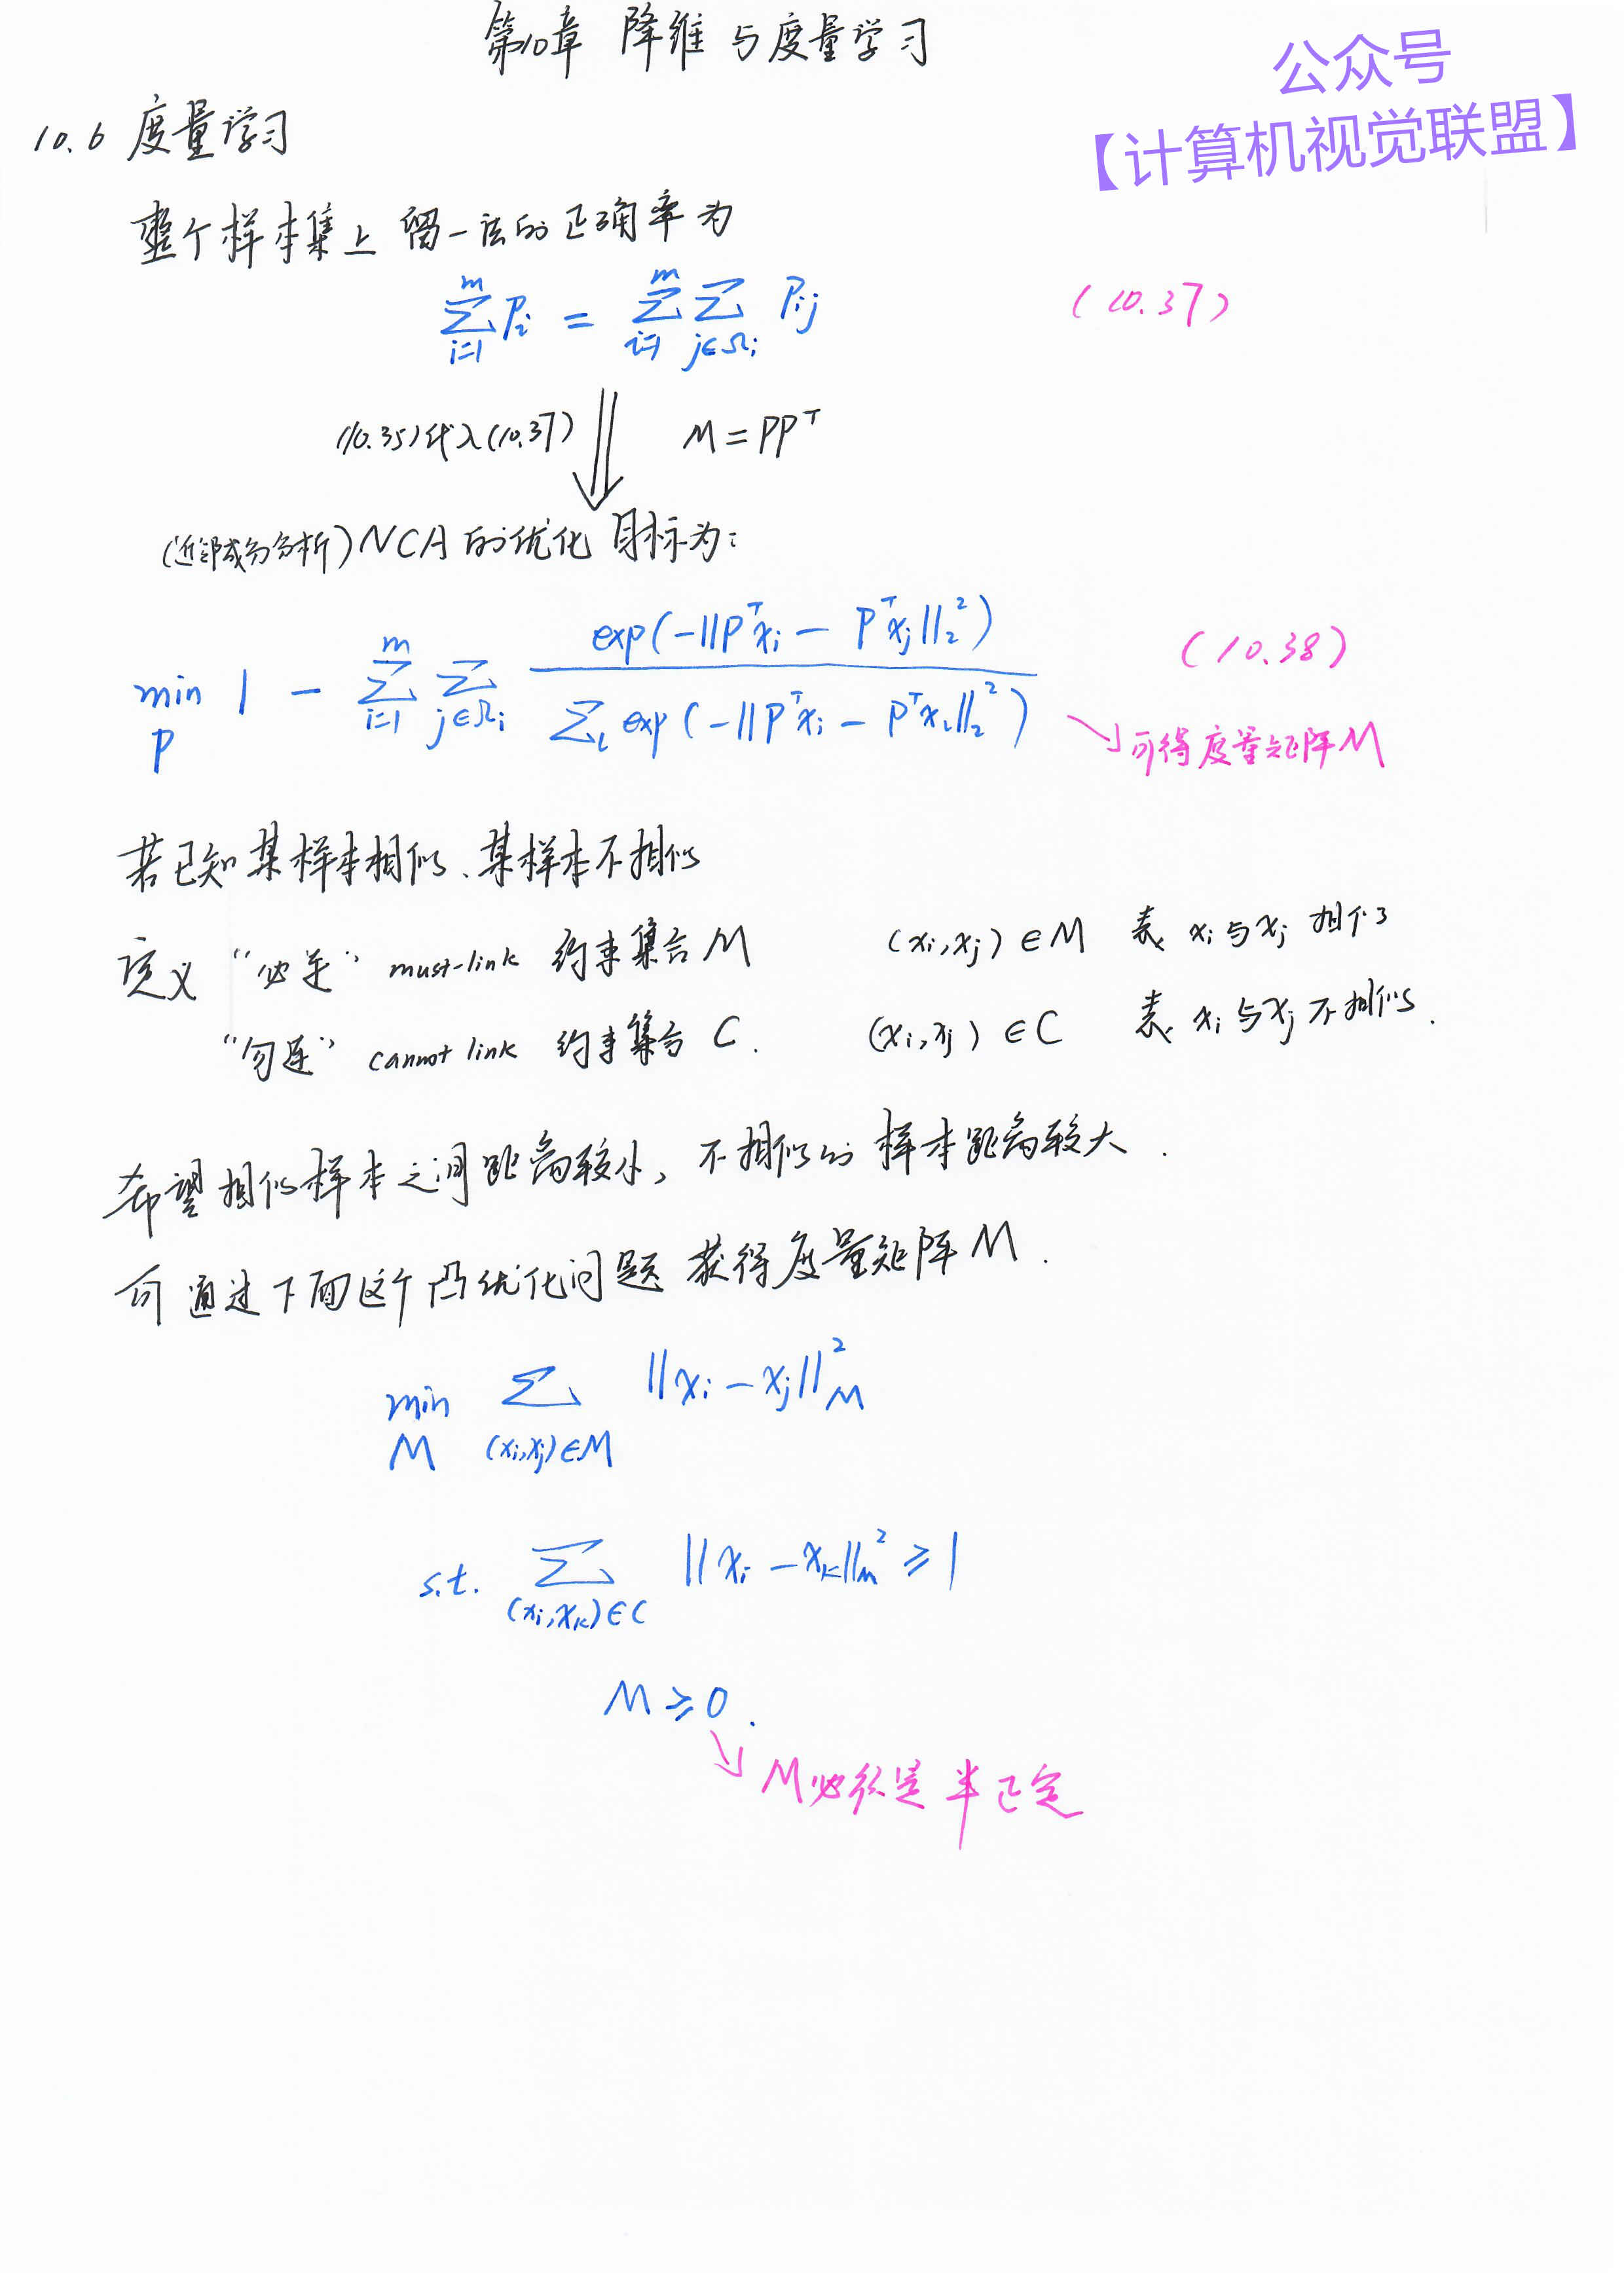 第10章 降维与度量学习
公众号
【计算机视觉联盟】
10.6 度量学习
整个样本集上留一法的正确率为
\sum_{i=1}^{m} P_i = \sum_{i=1}^{m} \sum_{j∈Ω_i} P_{ij} (10.37)
(10.35)代入(10.37) ⇓ M = PP^T
(近邻成分分析)NCA的优化目标为:
min_P 1 - \sum_{i=1}^{m} \sum_{j∈Ω_i} \frac{exp(-||P^T x_i - P^T x_j||_2^2)}{\sum_l exp(-||P^T x_i - P^T x_l||_2^2)} (10.38)
↘可得度量矩阵M
若已知某样本相似、某样本不相似
定义 "必连" must-link 约束集合 M (x_i, x_j) ∈ M 表 x_i 与 x_j 相似
"勿连" cannot link 约束集合 C. (x_i, x_j) ∈ C 表 x_i 与 x_j 不相似.
希望相似样本之间距离较小, 不相似的样本距离较大.
可通过下面这个凸优化问题获得度量矩阵M.
min_M \sum_{(x_i,x_j)∈M} ||x_i - x_j||_M^2
s.t. \sum_{(x_i,x_k)∈C} ||x_i - x_k||_M^2 ≥ 1
M ≥ 0.
↘ M必须是半正定